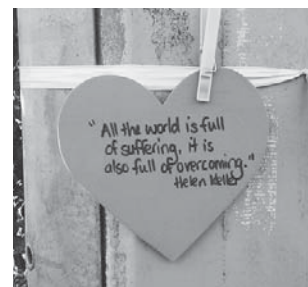 "All the world is full
of suffering, it is
also full of overcoming."
Helen Keller